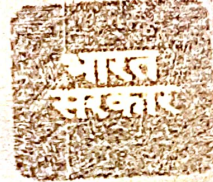 भारत
सरकार